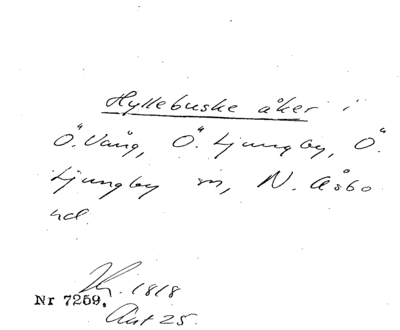 Hyllebuske åker i
Ö. Vång, Ö. Ljungby, Ö.
Ljungby sn, N. Åsbo
hd.
1818
Nr 7259.
Akt 25.